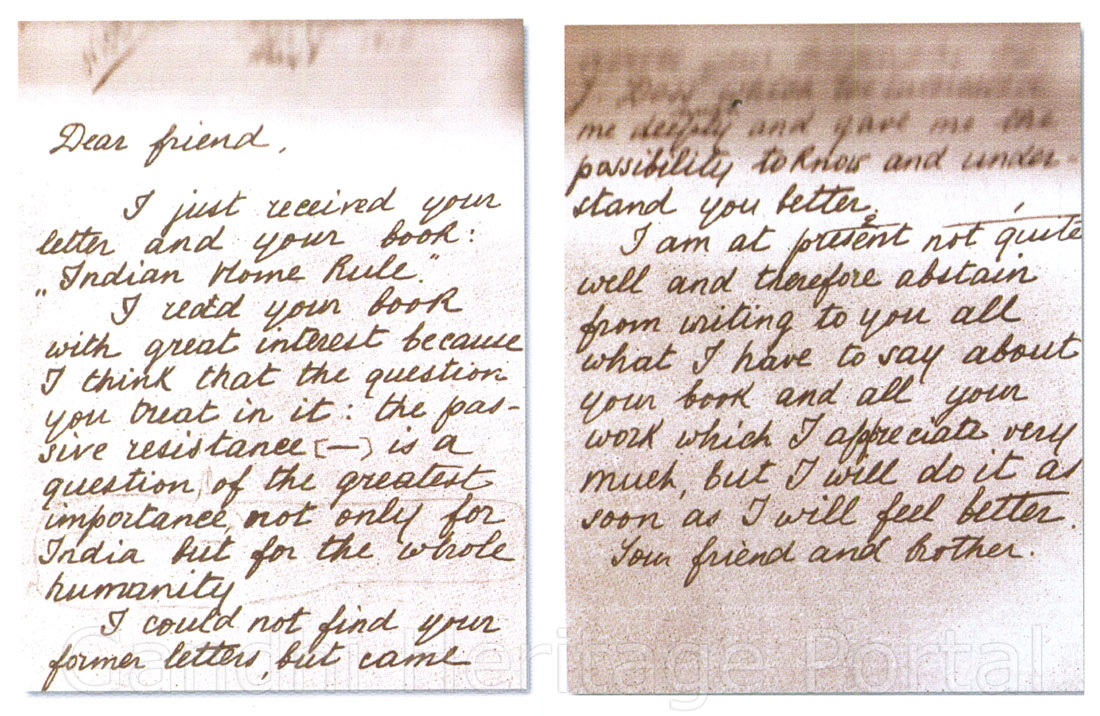 Dear friend,
I just received your
letter and your book:
„Indian Home Rule."
I read your book
with great interest because
I think that the question
you treat in it: the pas-
sive resistance [—] is a
question, of the greatest
importance, not only for
India but for the whole
humanity
I could not find your
former letters, but came
J. Doss which
me deeply and gave me the
possibility to know and under-
stand you better.
I am at present not quite
well and therefore abstain
from writing to you all
what I have to say about
your book and all your
work which I appreciate very
much, but I will do it as
soon as I will feel better.
Your friend and brother.
Gandhi Heritage Portal